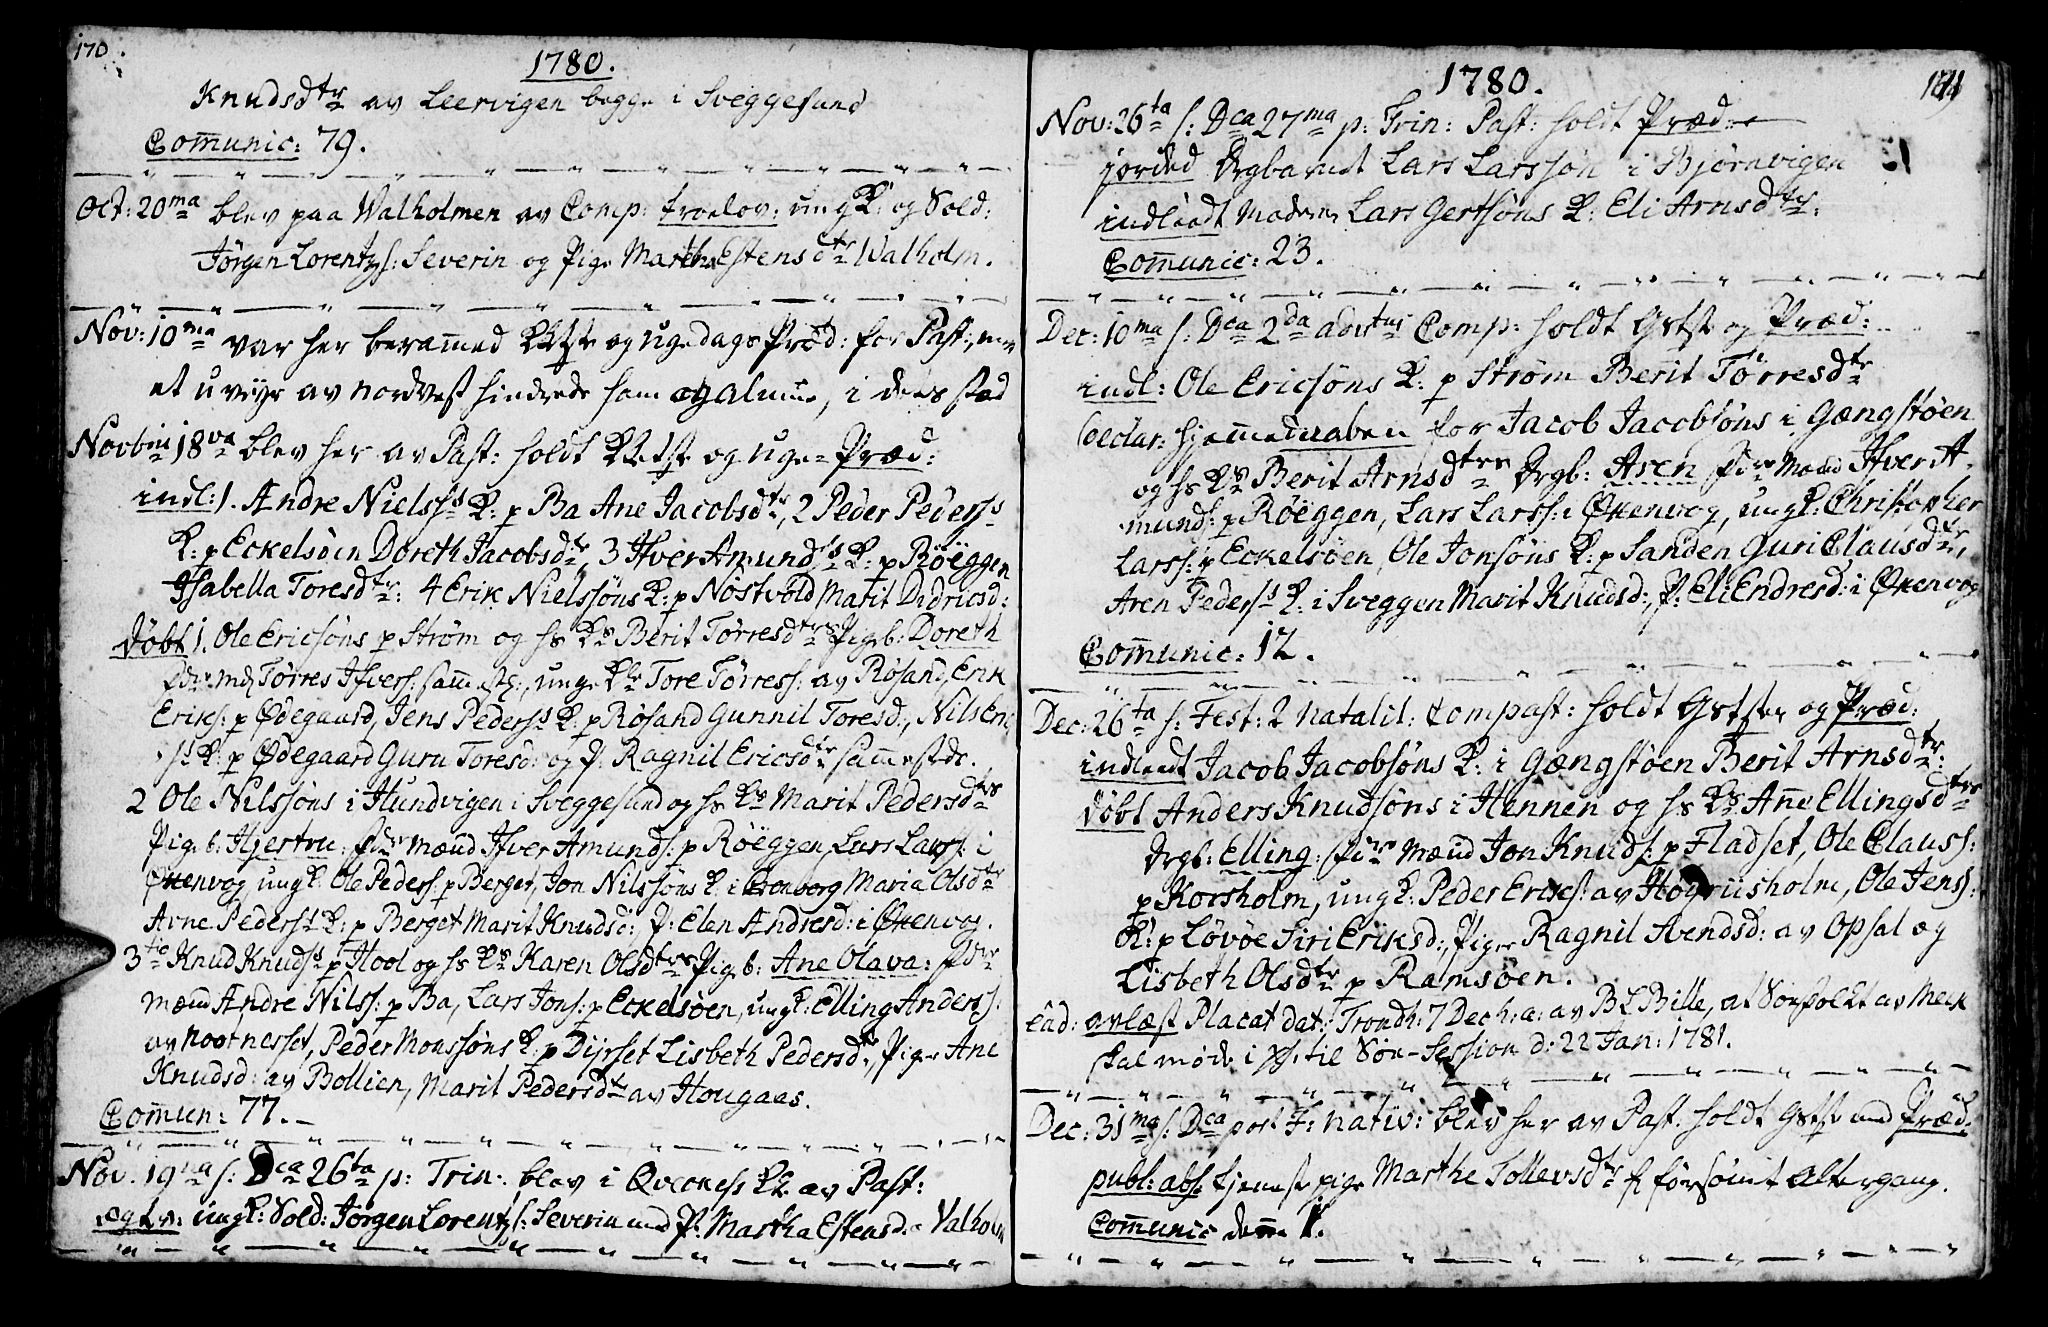 170
1780.
Knudsdtr av Leervigen begge i Sveggesund
Comunic: 79.
Oct: 20ma blev paa Walholmen av Comp: troelov: ung K: og Sold:
Jørgen Lorentzs: Severin og Pige Martha Estensdtr Walholm.
Nov: 10ma var her berammed og ugedags Præd: for Past:, men
et uveyr av Nordvest hindrede ham, i dens sted
Novbr: 18va blev her av Past: holdt og uge-Præd:
indl: 1. Andre Nielsss K: p Ba Ane Jacobsdtr, 2 Peder Pederss
K: p Eckelsöen Doreth Jacobsdtr, 3 Ifver Amundss K: p Röeggen
Isabella Toresdtr: 4 Erik Nielssöns K: p Nöstvold Marit Didricsd:
döbt 1. Ole Ericsöns p Ström og hs Ks Berit Törresdtrs Pigeb: Doreth
Fdr md Törres Ifvers: samestds:, unge Kle Tore Törress: av Rösand, Erik
Eriks: p Ødegaard, Jens Pederss K: p Rösand Gunnil Toresd:, Nils Eric
ss K: p Ødegaard Guru Toresd: og P. Ragnil Ericsdtr samestds.
2 Ole Nilssöns i Hundvigen i Sveggesund og hs Ks Marit Pedersdtrs
Pigeb: Hjertru: fdr mænd Ifver Amunds: p Röeggen, Lars Larss: i
Ørenvog ungk: Ole Peders: p Berget, Jon Nilssöns K: i Maria Olsdtr
Arne Pederss K: p Berget Marit Knudsd: P: Elen Andresd: i Ørenvog.
3tie Knud Knudss p Hool og hs Ks Karen Olsdtrs Pigeb: Ane Olava: Fdr
mænd Andre Nilss: p Ba, Lars Jons: p Eckelsöen, ungk: Elling Anderss:
av Noornesset, Peder Monssöns K: p Dyrset Lisbeth Pedersdtr, Pige Ane
Knudsd: av Bollien, Marit Pedersdtr av Hougaas.
Comun: 77.
Nov. 19na s: Dca 26ta p: Trin: blev i Qverness K av Past:
ægtv: ungk: Sold: Jörgen Lorentzs: Severin med P: Martha Estensd: Valholm
1780.
171
Nov: 26ta s: Dca 27ma p: Trin: Past: holdt Præd:
jorded Drgbarnet Lars Larssön i Björnvigen
indleedt Madame Lars Gertsöns K: Eli Arnsdtr:
Comunic: 23.
Dec: 10ma s: Dca 2da adventus Comp: holdt Gstst og Præd:
indl: Ole Ericsöns K: p Ström Berit Törresdtr
declar: hjemmedaaben for Jacob Jacobsöns i Gængstöen
og hs Ks Berit Arnsdtrs Drgb: Aren, fdr mænd Ifver A-
munds: p Röeggen, Lars Larss: i Ørenvog, ungk: Christopher
Larss: p Eckelsöen, Ole Jonsöns K: p Sanden Guri Clausdtr,
Aren Pederss K: i Sveggen Marit Knudsd:, P: Eli Endresd: i Ørenvog
Comunic: 12.
Dec: 26ta s: Fest: 2 Natalit: Compast: holdt Gststen og Præd:
indleedt Jacob Jacobsöns K: i Gængstöen Berit Arnsdtr:
döbt Anders Knudsöns i Hennen og hs Ks Anne Ellingsdtrs
Drgb: Elling: fdr mænd Jon Knuds: p Fladset, Ole Clauss:
p Korsholm, ungk: Peder Eriks: av Hogriisholm, Ole Jenss:
K: p Lövöe Siri Eriksd:, Piger Ragnil Svendsd: av Opsal og
Lisbeth Olsdtr p Ramsöen.
ead: avlæst Placat dat: Trondh: 7 Dec h: a: av B L Bille, at Söefolket av Meck
skal möde i til Söe-Session d: 22 Jan: 1781.
Dec: 31ma s: Dca post F: Nativ: blev her av Past: holdt Gstst med Præd:
publ: abs: tjenestepige Marthe Tollevsdtr f forsömt Altergang.
Comunic denne 1.